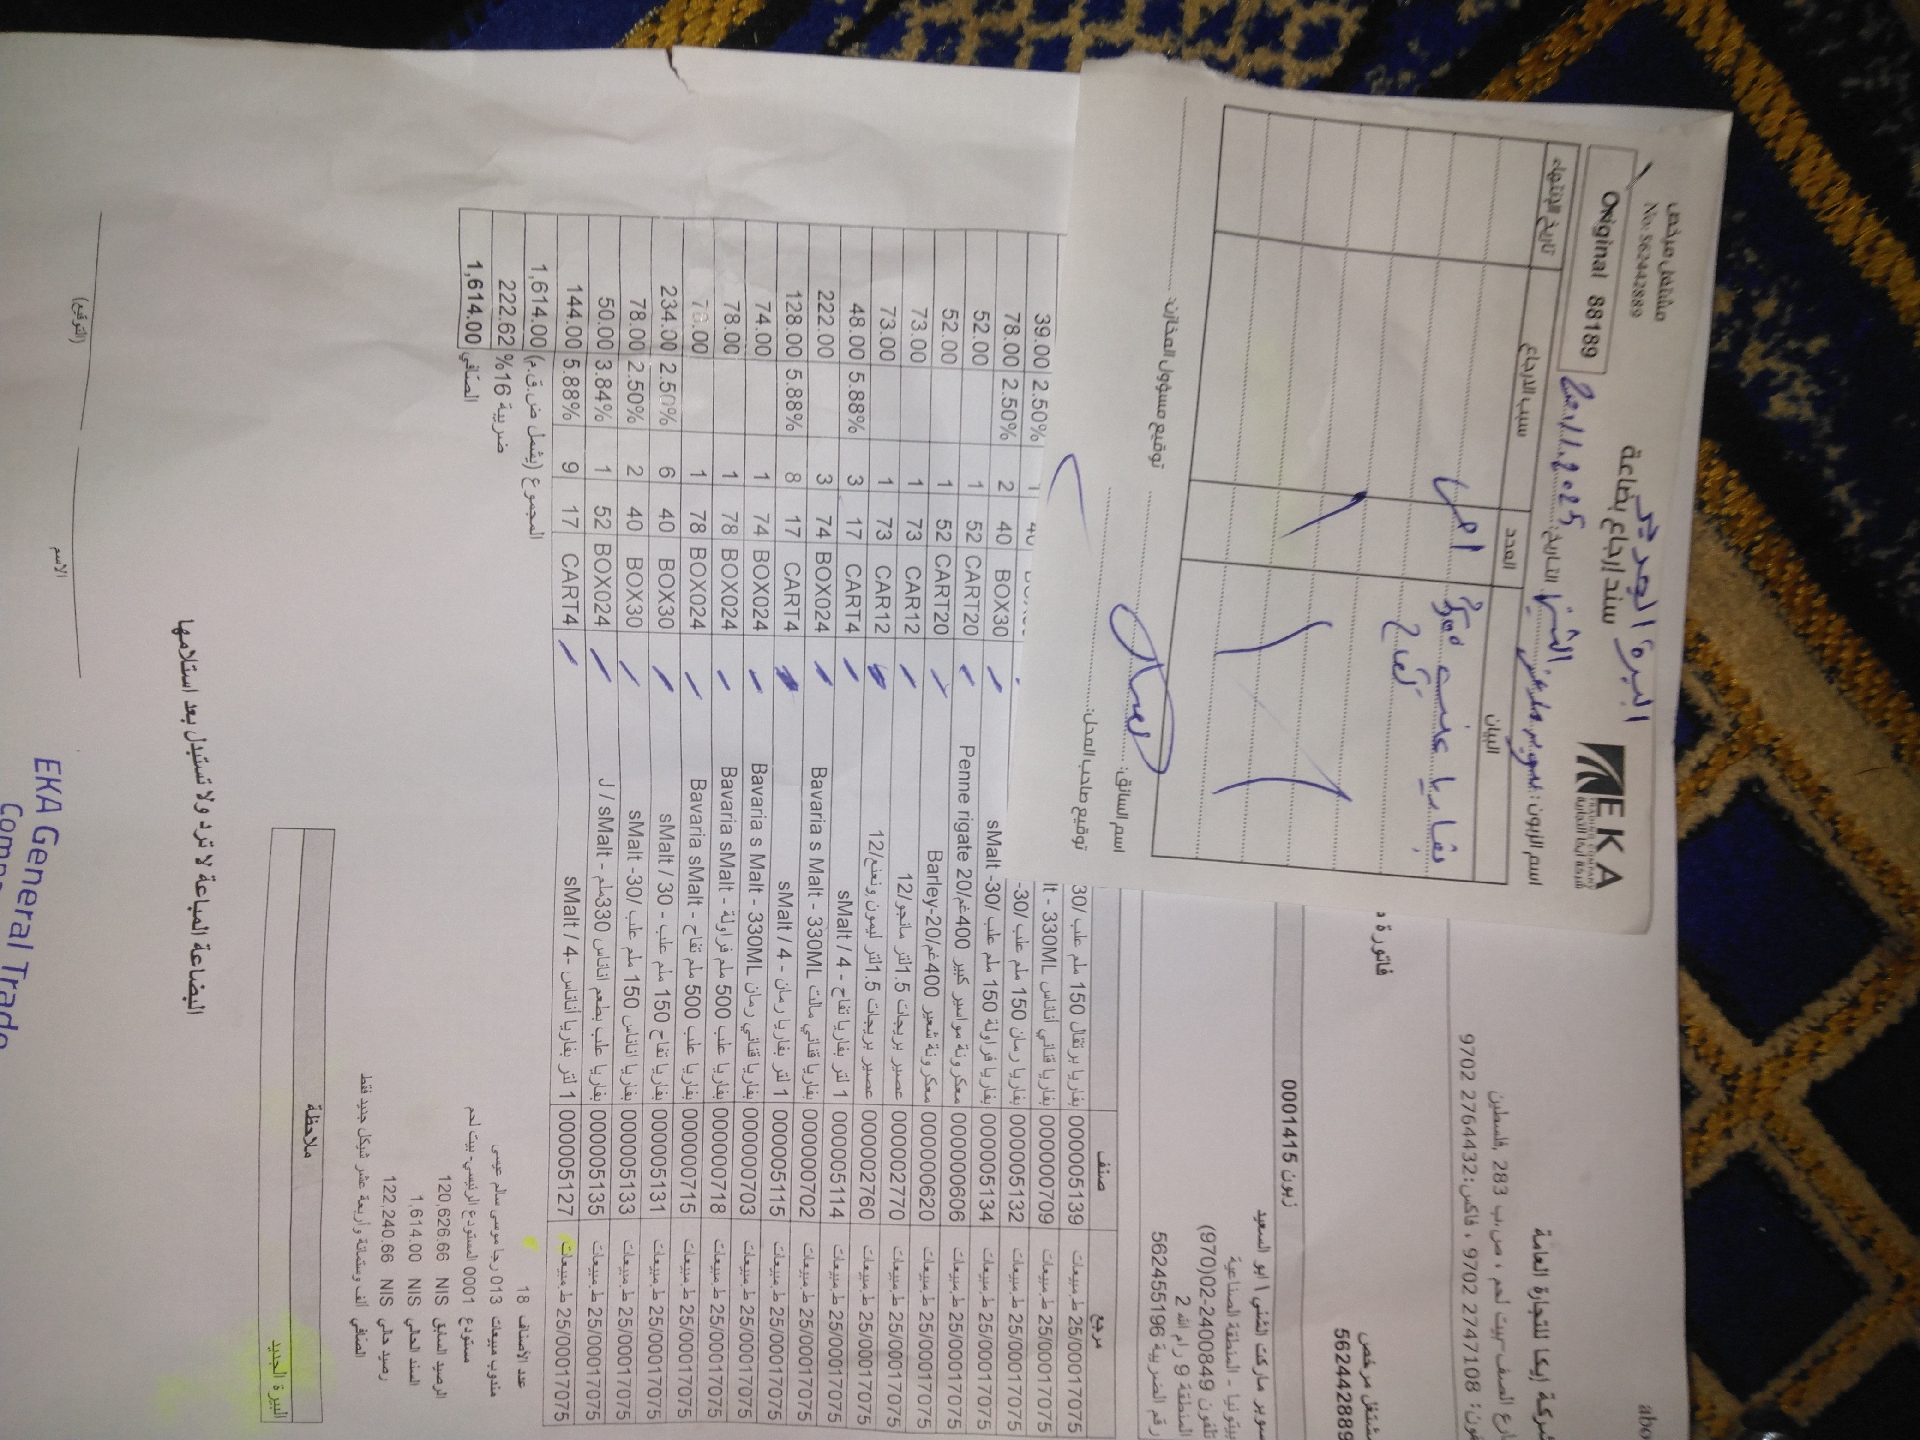 EKA
TRADING COMPANY
شركة ايكا التجارية
البيرة الجديدة
سند إرجاع بضاعة
مشتغل مرخص
No: 562442889
Original 88189
اسم الزبون: سوبر ماركت الشني التاريخ: 20/1/2025
البيان العدد سبب الارجاع تاريخ الإنتهاء
بفاريا علب
تفاح
اسم السائق:
توقيع مسؤول المخازن:
توقيع صاحب المحل:
شركة إيكا للتجارة العامة
شارع الصف-بيت لحم ، ص.ب 283 ,فلسطين
9702 2747108 ، فاكس: 9702 2764432
مشتغل مرخص
562442889
فاتورة
زبون 0001415
سوبر ماركت الشني \ ابو السعيد
بيتونيا - المنطقة الصناعية
تلفون 02-2400849(970)
المنطقة 9 رام الله 2
رقم الضريبة 562455196
مرجع صنف
ط.مبيعات 25/00017075 000005139 بفاريا برتقال 150 ملم علب /30
ط.مبيعات 25/00017075 000000709 بفاريا قناني أناناس 330ML - lt 1 2.50% 39.00
ط.مبيعات 25/00017075 000005132 بفاريا رمان 150 ملم علب /30- 40 BOX30 2 2.50% 78.00
ط.مبيعات 25/00017075 000005134 بفاريا فراولة 150 ملم علب /30- sMalt 52 CART20 1 52.00
ط.مبيعات 25/00017075 000000606 معكرونة مواسير كبير 400غم/20 Penne rigate 52 CART20 1 52.00
ط.مبيعات 25/00017075 000000620 معكرونة شعير 400غم/20-Barley 73 CAR12 1 73.00
ط.مبيعات 25/00017075 000002770 عصير بريجات 1.5لتر مانجو/12 73 CAR12 1 73.00
ط.مبيعات 25/00017075 000002760 عصير بريجات 1.5لتر ليمون ونعنع/12 17 CART4 3 5.88% 48.00
ط.مبيعات 25/00017075 000005114 1 لتر بفاريا تفاح - sMalt / 4 74 BOX024 3 222.00
ط.مبيعات 25/00017075 000000702 بفاريا قناني مالت Bavaria s Malt - 330ML 17 CART4 8 5.88% 128.00
ط.مبيعات 25/00017075 000005115 1 لتر بفاريا رمان - sMalt / 4 74 BOX024 1 74.00
ط.مبيعات 25/00017075 000000703 بفاريا قناني رمان Bavaria s Malt - 330ML 78 BOX024 1 78.00
ط.مبيعات 25/00017075 000000718 بفاريا علب 500 ملم فراولة - Bavaria sMalt 78 BOX024 1 78.00
ط.مبيعات 25/00017075 000000715 بفاريا علب 500 ملم تفاح - Bavaria sMalt 40 BOX30 6 2.50% 234.00
ط.مبيعات 25/00017075 000005131 بفاريا تفاح 150 ملم علب - sMalt / 30 40 BOX30 2 2.50% 78.00
ط.مبيعات 25/00017075 000005133 بفاريا اناناس 150 ملم علب /30- sMalt 52 BOX024 1 3.84% 50.00
ط.مبيعات 25/00017075 000005135 بفاريا علب بطعم اناناس 330ملم - J / sMalt
ط.مبيعات 25/00017075 000005127 1 لتر بفاريا أناناس -4 / sMalt 17 CART4 9 5.88% 144.00
المجموع (يشمل ض.ق.م) 1,614.00
ضريبة 16% 222.62
الصافي 1,614.00
عدد الأصناف 18
مندوب مبيعات 013 رجا موسى سالم عيسى
مستودع 0001 المستودع الرئيسي- بيت لحم
الرصيد السابق 120,626.66 NIS
السند الحالي 1,614.00 NIS
رصيد حالي 122,240.66 NIS
الصافي ألف وستمائة وأربعة عشر شيكل جديد فقط
ملاحظة
البيرة الجديد
البضاعة المباعة لا ترد ولا تستبدل بعد استلامها
الاسم
(التوقيع)
EKA General Trade